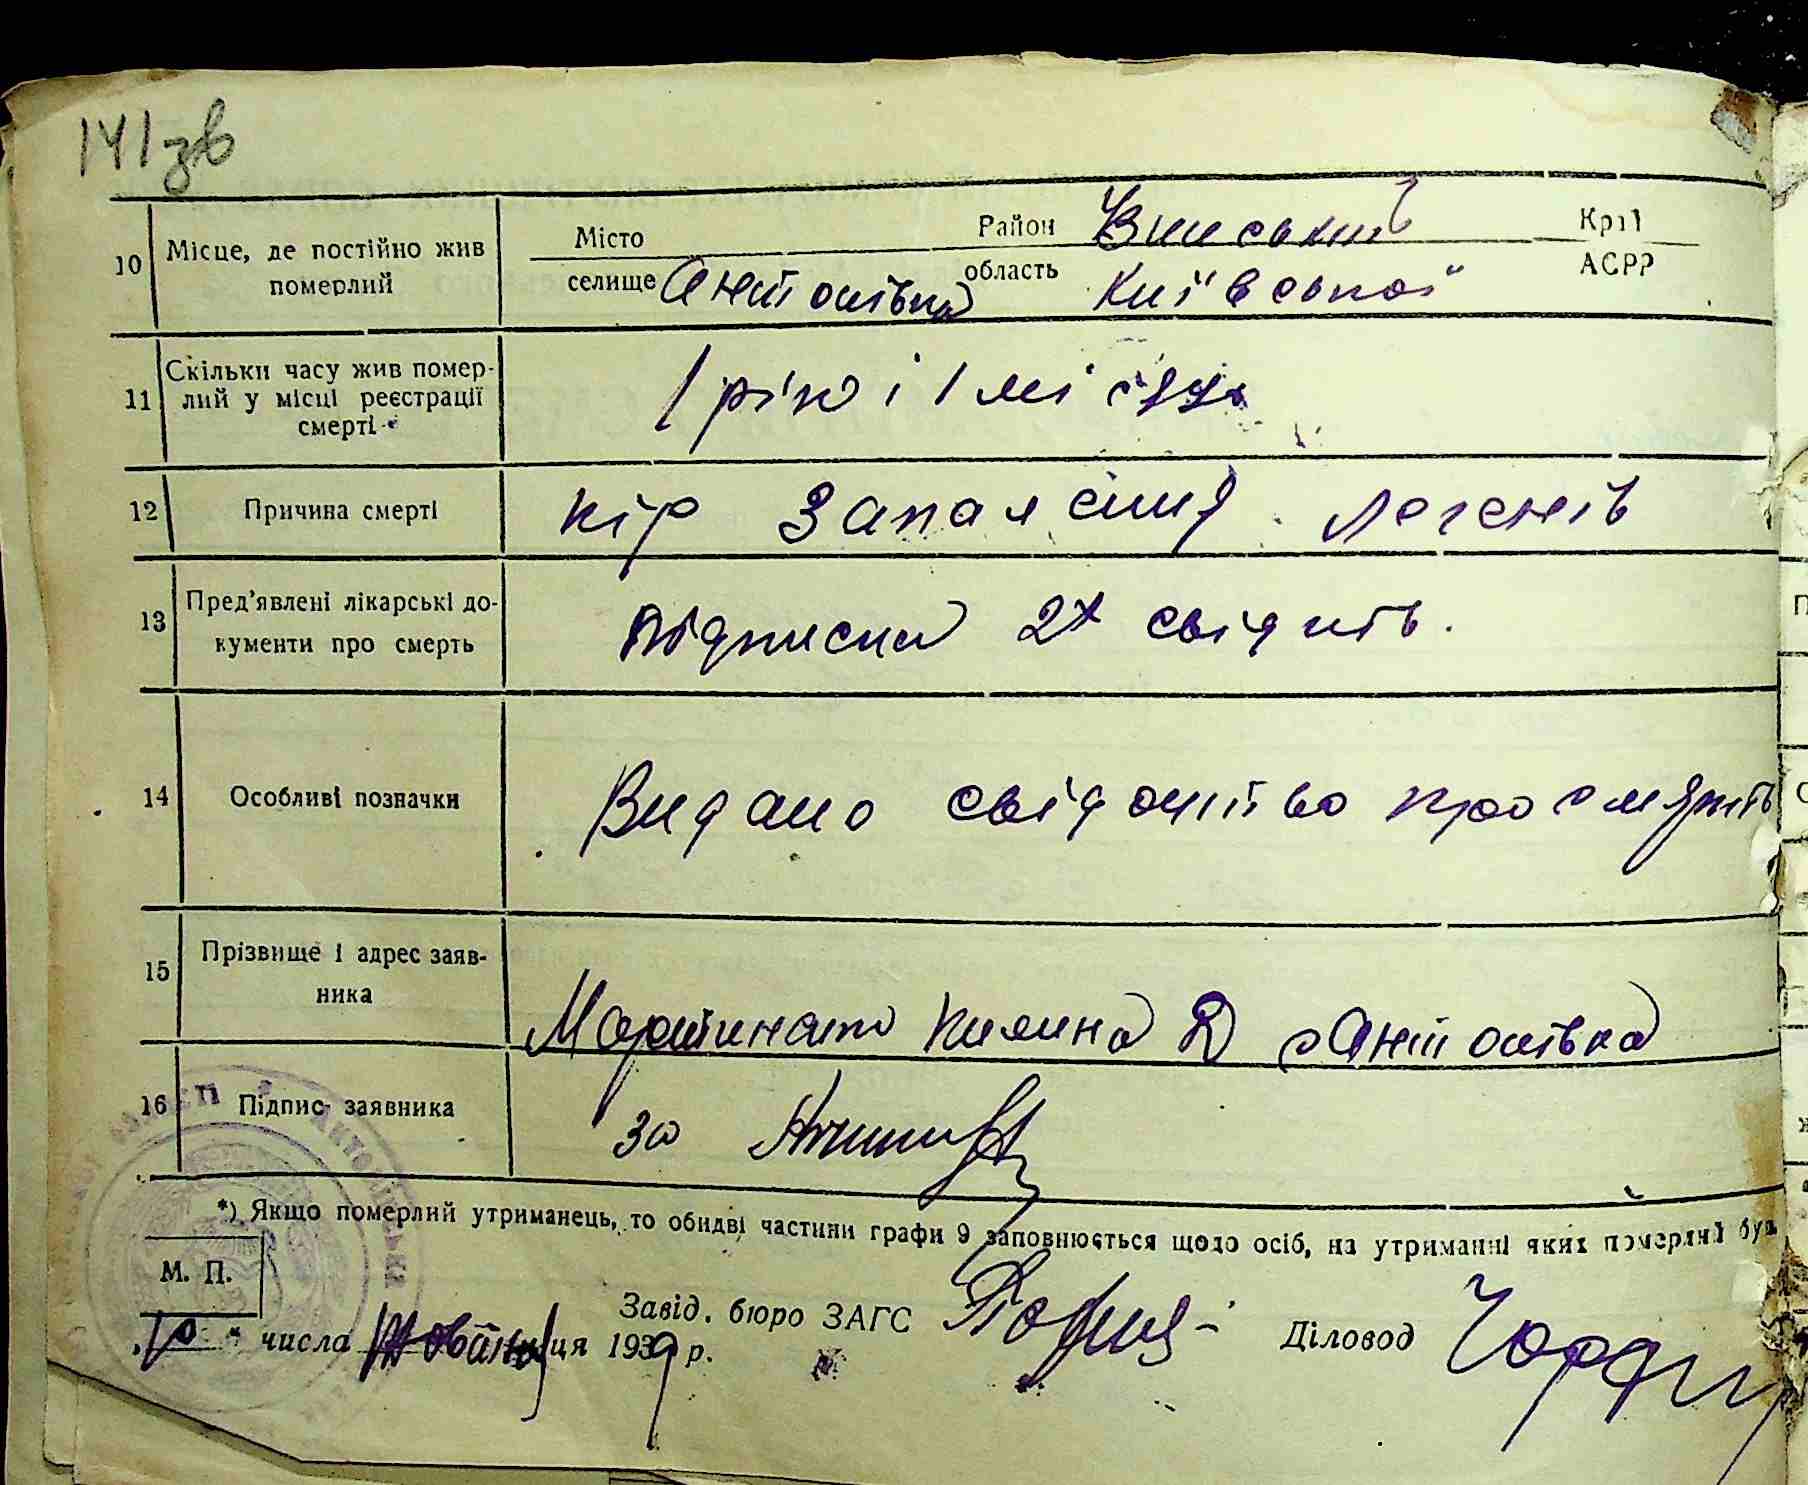 141зв
10 Місце, де постійно жив Місто Район Край
померлий селище Антонівка область Київської АСРР
11 Скільки часу жив помер-
лий у місці реєстрації 1 рік і 1 місяць
смерті
12 Причина смерті кір Запалення Легенів
13 Пред'явлені лікарські до-
кументи про смерть підписка 2х свідків.
14 Особливі позначки Видано свідоцтво про смерть
15 Прізвище і адрес заяв-
ника Д с Антонівка
16 Підпис заявника за
*) Якщо померлий утриманець, то обидві частини графи 9 заповнюється щодо осіб, на утриманні яких померлий був
М. П.
Завід. бюро ЗАГС Діловод
"10" числа 1939 р.